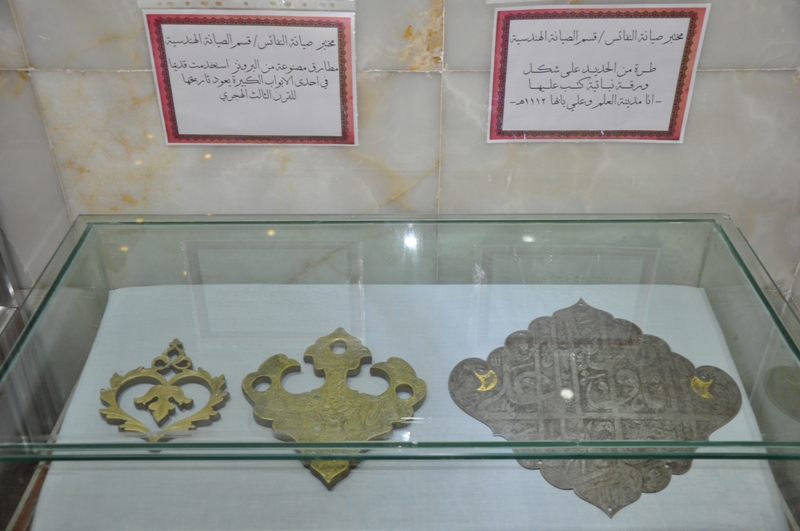 مختبر صيانة النفائس / قسم الصيانة الهندسية
مطارق مصنوعة من البرونز استخدمت قديما
في احدى الابواب الكبيرة يعود تاريخها
للقرن الثالث الهجري
مختبر صيانة النفائس / قسم الصيانة الهندسية
طرة من الحديد على شكل
ورقة نباتية كتب عليها
- انا مدينة العلم وعلي بابها ١١١٢هـ -